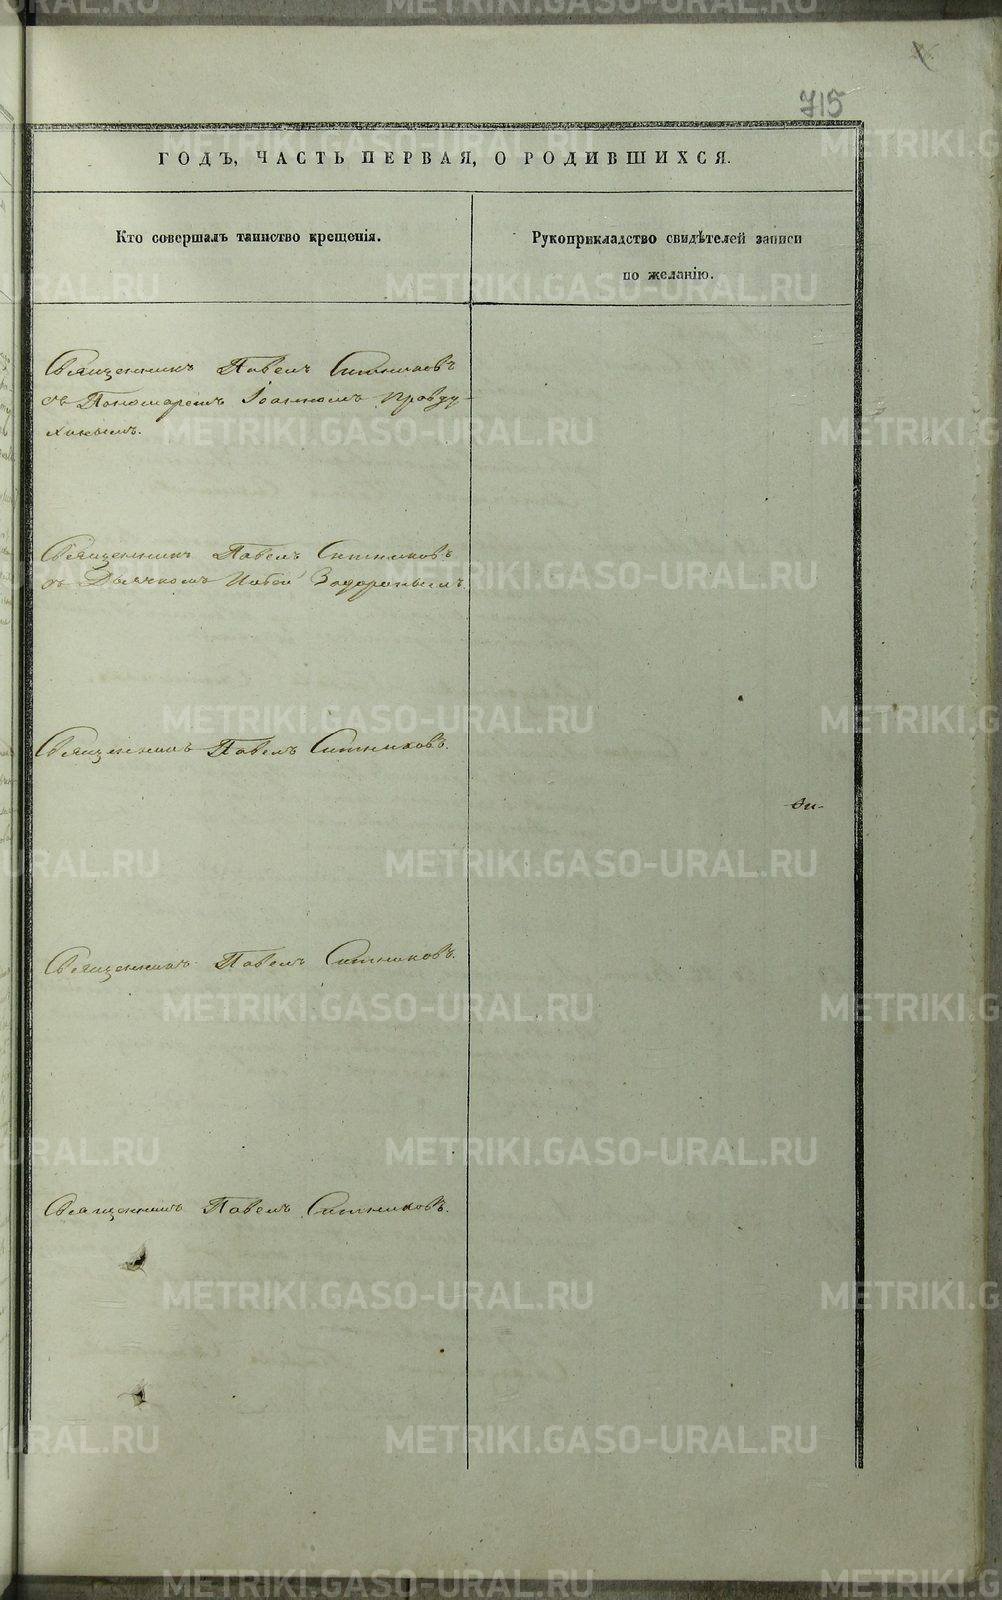 715
ГОДЪ, ЧАСТЬ ПЕРВАЯ, О РОДИВШИХСЯ.
Кто совершалъ таинство крещенія.
Рукоприкладство свидѣтелей записи
по желанію.
Священникъ Павелъ Ситниковъ
съ Пономаремъ Іоанномъ Правду-
хинымъ.
Священникъ Павелъ Ситниковъ
съ Дьячкомъ Задоринымъ.
Священникъ Павелъ Ситниковъ.
Священникъ Павелъ Ситниковъ.
Священникъ Павелъ Ситниковъ.
METRIKI.GASO-URAL.RU